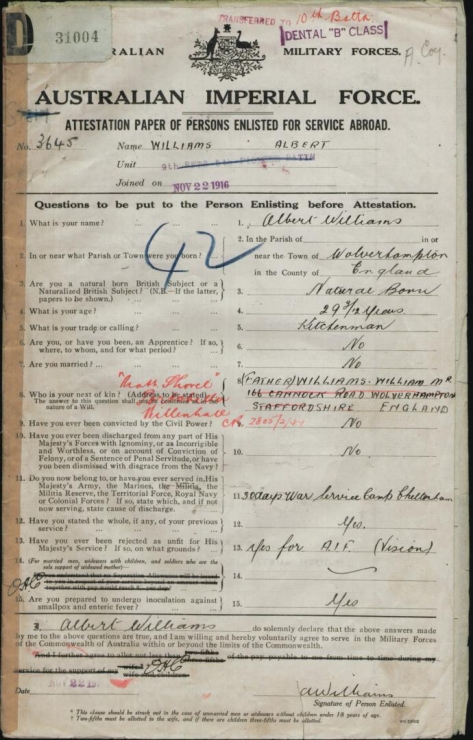 TRANSFERRED TO 10th Battn
DENTAL "B" CLASS
D 31004
AUSTRALIAN MILITARY FORCES.
A Coy.
AUSTRALIAN IMPERIAL FORCE.
ATTESTATION PAPER OF PERSONS ENLISTED FOR SERVICE ABROAD.
No. 3645 Name WILLIAMS ALBERT
Unit
Joined on NOV 22 1916
Questions to be put to the Person Enlisting before Attestation.
1. What is your name? 1. Albert Williams
2. In or near what Parish or Town were you born? 2. In the Parish of in or
near the Town of Wolverhampton
in the County of England
42
3. Are you a natural born British Subject or a
Naturalized British Subject? (N.B.—If the latter,
papers to be shown.) 3. Natural Born
4. What is your age? 4. 29 3/12 Years
5. What is your trade or calling? 5. Kitchenman
6. Are you, or have you been, an Apprentice? If so,
where, to whom, and for what period? 6. No
7. Are you married? 7. No
8. Who is your next of kin? (Address to be stated)
The answer to this question shall
nature of a Will.
8. (FATHER) WILLIAMS. WILLIAM MR
166 CANNOCK ROAD WOLVERHAMPTON
STAFFORDSHIRE ENGLAND
Willenhall
9. Have you ever been convicted by the Civil Power? 9. No
10. Have you ever been discharged from any part of His
Majesty's Forces with Ignominy, or as Incorrigible
and Worthless, or on account of Conviction
of Felony, or of a Sentence of Penal Servitude, or have
you been dismissed with disgrace from the Navy? 10. No.
11. Do you now belong to, or have you ever served in, His
Majesty's Army, the Marines, the Militia, the
Militia Reserve, the Territorial Force, Royal Navy
or Colonial Forces? If so, state which, and if not
now serving, state cause of discharge. 11. 30 days War Service Camp
12. Have you stated the whole, if any, of your previous
service? 12. Yes.
13. Have you ever been rejected as unfit for His
Majesty's Service? If so, on what grounds? 13. Yes for A.I.F. (Vision)
14. (For married men, widowers with children, and soldiers who are the
sole support of widowed mother)— 14.
15. Are you prepared to undergo inoculation against
smallpox and enteric fever? 15. Yes
I, Albert Williams do solemnly declare that the above answers made
by me to the above questions are true, and I am willing and hereby voluntarily agree to serve in the Military Forces
of the Commonwealth of Australia within or beyond the limits of the Commonwealth.
And I further agree to allot not less than of the pay payable to me from time to time during my
service for the support of my
Date NOV 22 1916
AWilliams
Signature of Person Enlisted.
* This clause should be struck out in the case of unmarried men or widowers without children under 18 years of age.
† Two-fifths must be allotted to the wife, and if there are children three-fifths must be allotted.